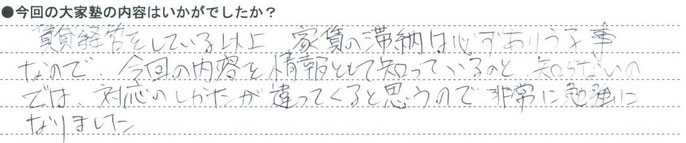 ●今回の大家塾の内容はいかがでしたか？
賃貸経営をしている以上 家賃の滞納は必ずありうる事
なので、今回の内容を情報として知っているのと 知らないの
では、対応のしかたが違ってくると思うので 非常に勉強に
なりました